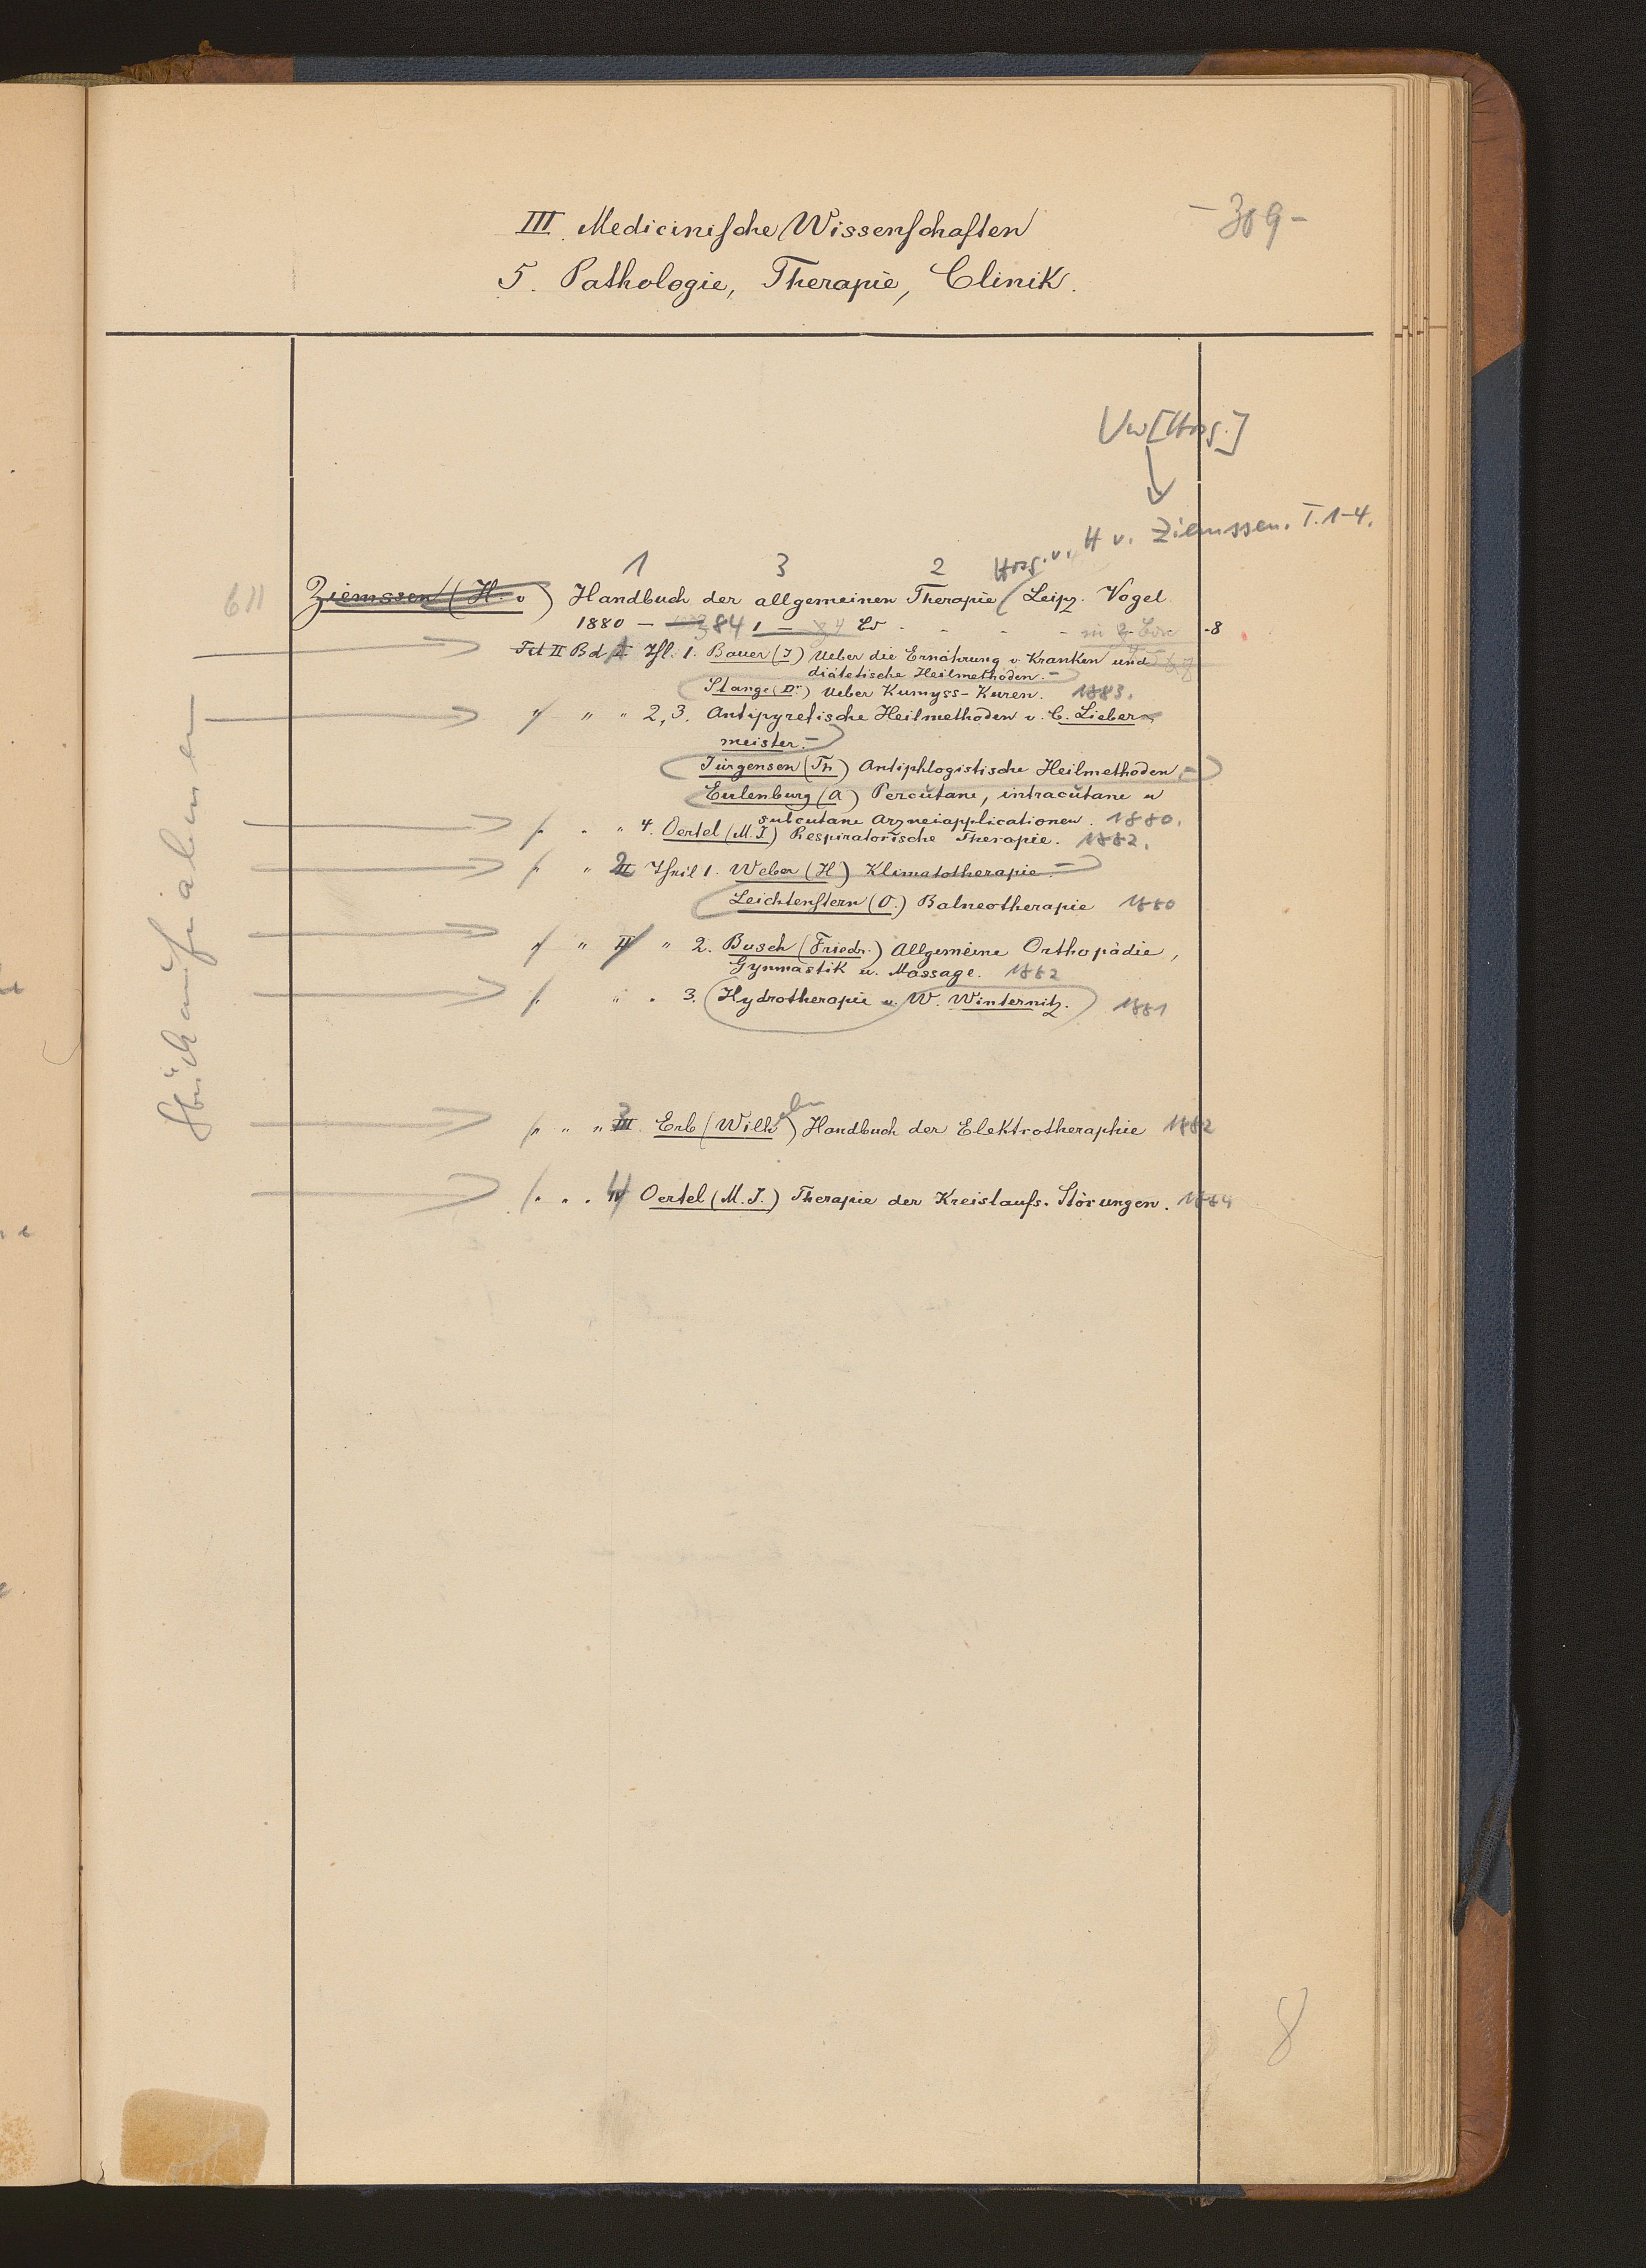 III. Medicinische Wissenschaften
-309-
5. Pathologie, Therapie, Clinik.
Vw [Hrsg.]
Hrsg. v. H v. Ziemssen. T. 1-4.
1 3 2
611 Ziemssen (H. v) Handbuch der allgemeinen Therapie Leipz. Vogel
1880 - 84 1 - 4 - - - - in -8
II Bd I Thl. 1. Bauer (J) Ueber die Ernährung v. Kranken und
diätetische Heilmethoden. -
Stange (Dr.) Ueber Kumyss-Kuren. 1883.
" " " 2, 3. Antipyretische Heilmethoden v. C. Lieber-
meister. -
Jürgensen (Th) Antiphlogistische Heilmethoden. -
Eulenburg (A) Percutane, intracutane u
subcutane Arzneiapplicationen. 1880.
" " " 4. Oertel (M. J.) Respiratorische Therapie. 1882.
" " 2 II Theil 1. Weber (H) Klimatotherapie. -
Leichtenstern (O.) Balneotherapie 1880
" " II " 2. Busch (Friedr.) Allgemeine Orthopädie,
Gymnastik u. Massage. 1882
" " " 3. Hydrotherapie v. W. Winternitz. 1881
" " " 3 III. Erb (Wilh elm) Handbuch der Elektrotheraphie 1882
" " " 4 IV Oertel (M. J.) Therapie der Kreislaufs-Störungen. 1884
Stück aufnahmen
8